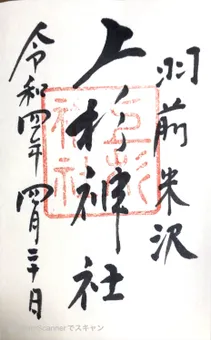 羽前米沢
上杉神社
令和四年四月二十日
上杉神社
Scannerでスキャン